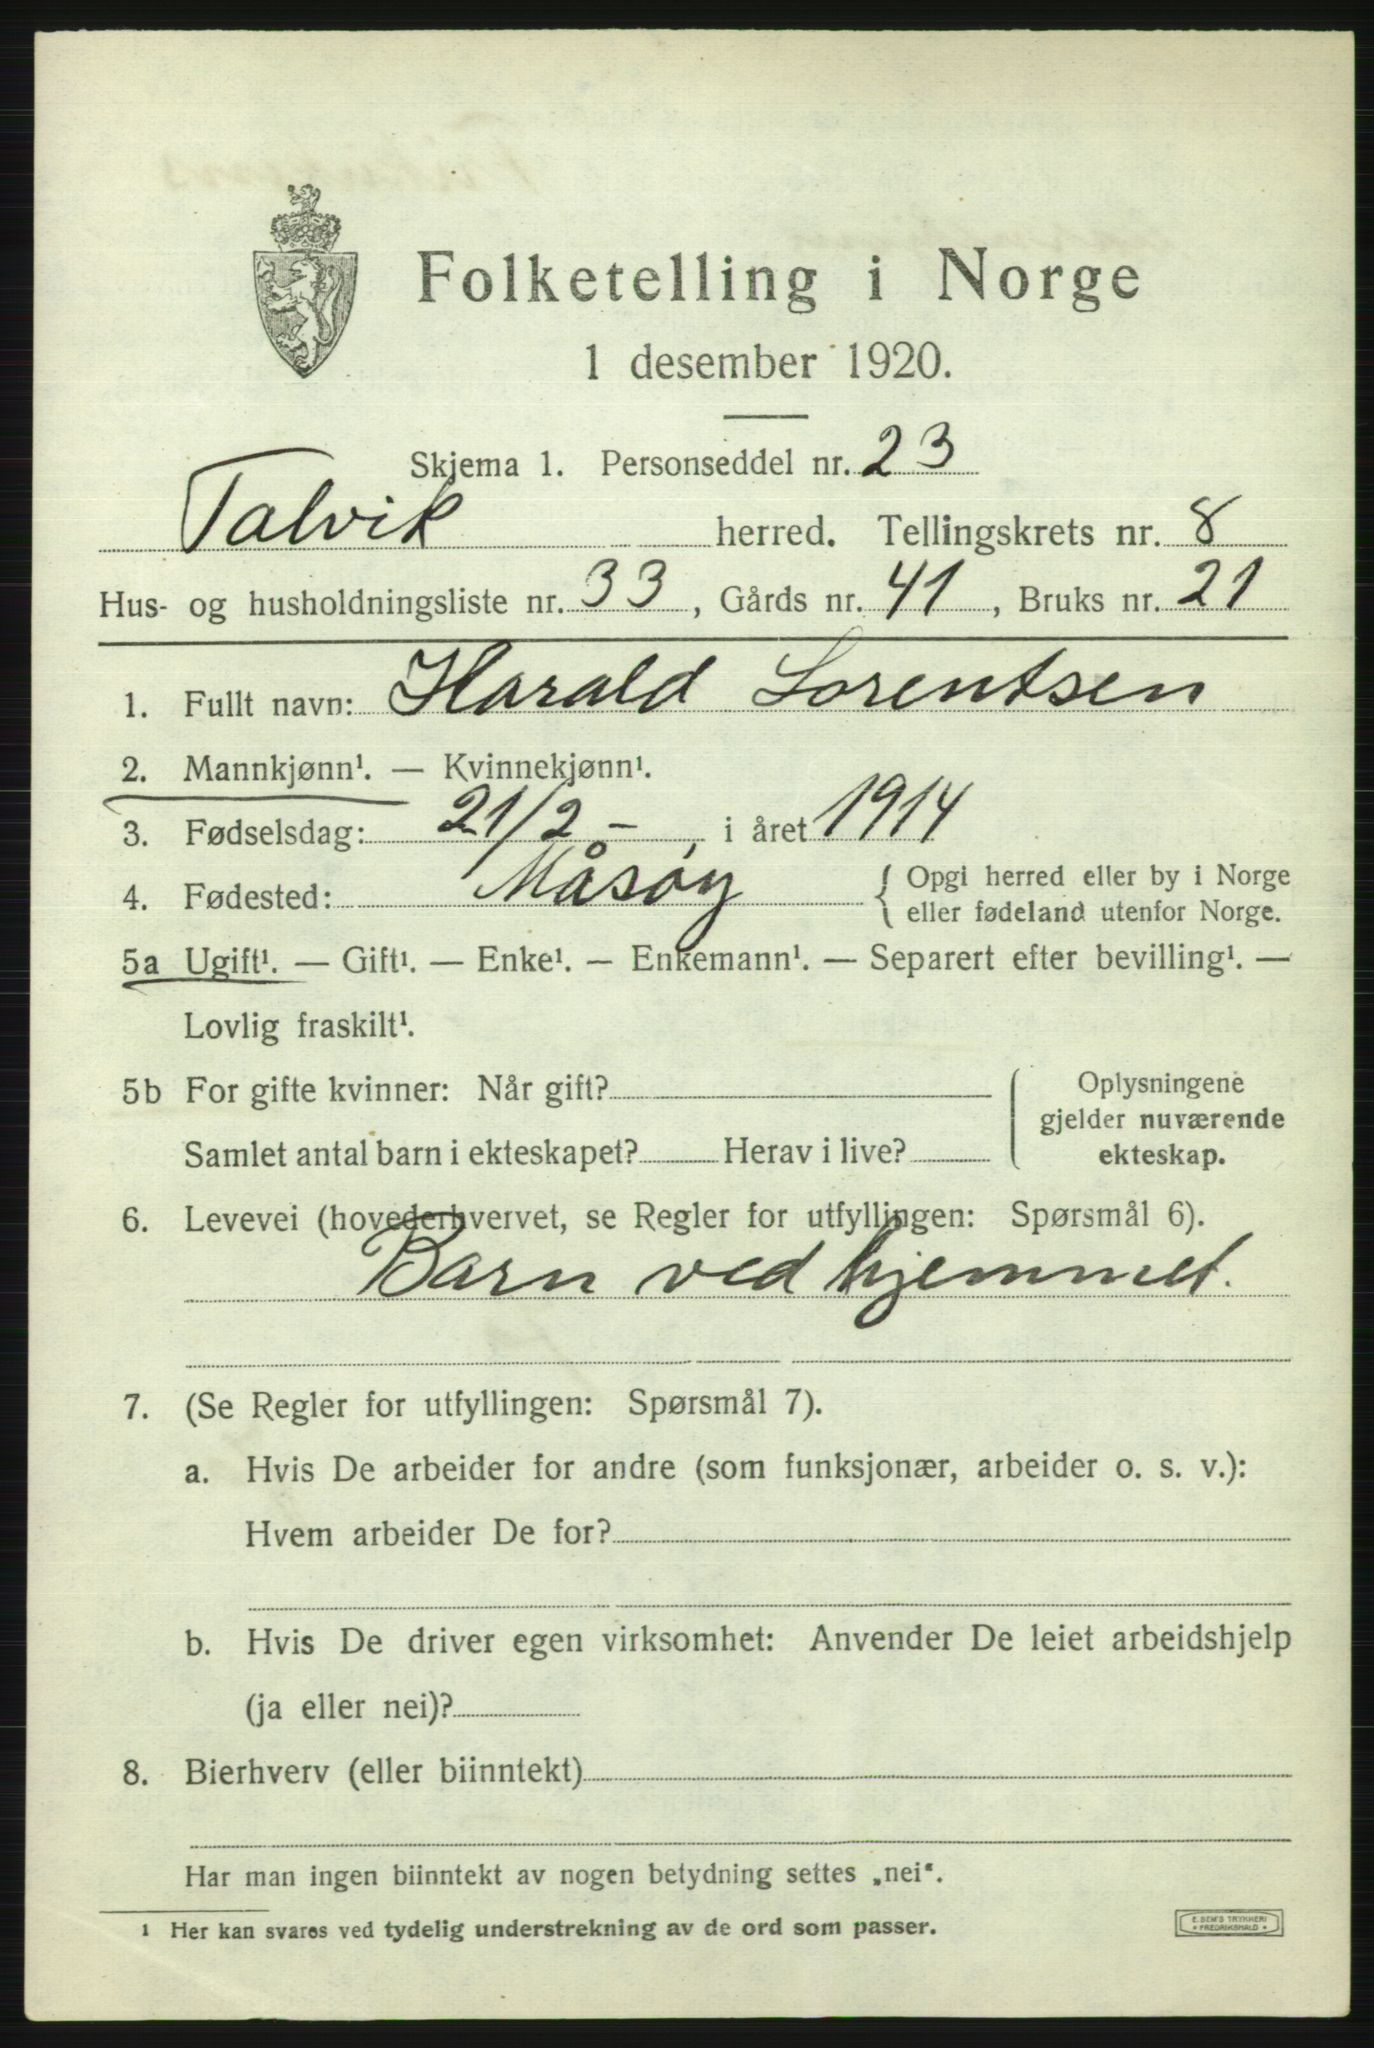 Folketelling i Norge
1 desember 1920.
Skjema 1. Personseddel nr. 23
Talvik herred. Tellingskrets nr. 8
Hus- og husholdningsliste nr. 33, Gårds nr. 41, Bruks nr. 21
1. Fullt navn: Harald Lorentsen
2. Mannkjønn¹. — Kvinnekjønn¹.
3. Fødselsdag: 21/2 –, i året 1914
4. Fødested: Måsøy { Opgi herred eller by i Norge
eller fødeland utenfor Norge.
5a Ugift¹. — Gift¹. — Enke¹. — Enkemann¹. — Separert efter bevilling¹. —
Lovlig fraskilt¹.
5b For gifte kvinner: Når gift?
Samlet antal barn i ekteskapet? Herav i live?
Oplysningene
gjelder nuværende
ekteskap.
6. Levevei (hovederhvervet, se Regler for utfyllingen: Spørsmål 6).
Barn ved hjemmet.
7. (Se Regler for utfyllingen: Spørsmål 7).
a. Hvis De arbeider for andre (som funksjonær, arbeider o. s. v.):
Hvem arbeider De for?
b. Hvis De driver egen virksomhet: Anvender De leiet arbeidshjelp
(ja eller nei)?
8. Bierhverv (eller biinntekt)
Har man ingen biinntekt av nogen betydning settes „nei“.
¹ Her kan svares ved tydelig understrekning av de ord som passer.
E. SEM'S TRYKKERI
FREDRIKSHALD